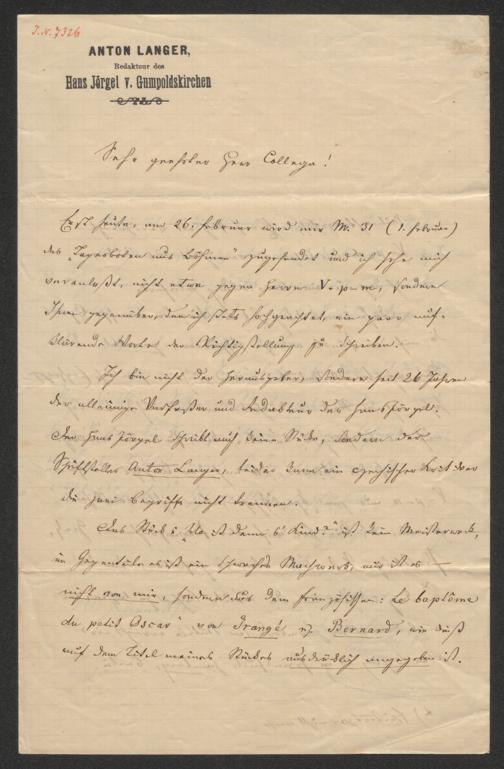 I.N. 7326
ANTON LANGER,
Redakteur des
Hans Jörgel v. Gumpoldskirchen
Sehr geehrter Herr Collega!
Erst heute, am 26. Februar wird mir No. 31 (1. Februar)
des „Tagesboten aus Böhmen" zugesendet und ich sehe mich
veranlaßt, nicht etwa gegen Herrn V-p-m, sondern
Ihnen gegenüber, den ich stets hochgeachtet, ein paar auf-
klärende Worte der Richtigstellung zu schreiben.
Ich bin nicht der Herausgeber, sondern seit 26 Jahren
der alleinige Verfasser und Redakteur des Hansjörgel.
Der Hans Jörgel schreibt auch keine Stücke, sondern der
Schriftsteller Anton Langer, leider kann ein czechischer Kritiker
die zwei Begriffe nicht trennen.
Das Stück: „Wo ist denn 's Kind" ist kein Meisterwerk,
im Gegentheile es ist ein schwaches Machwerk, nur ist es —
nicht von mir, sondern aus dem Französischen: „Le baptême
du petit Oscar" von Grangé u. Bernard, wie dieß
auf dem Titel meines Stückes ausdrücklich angegeben ist.